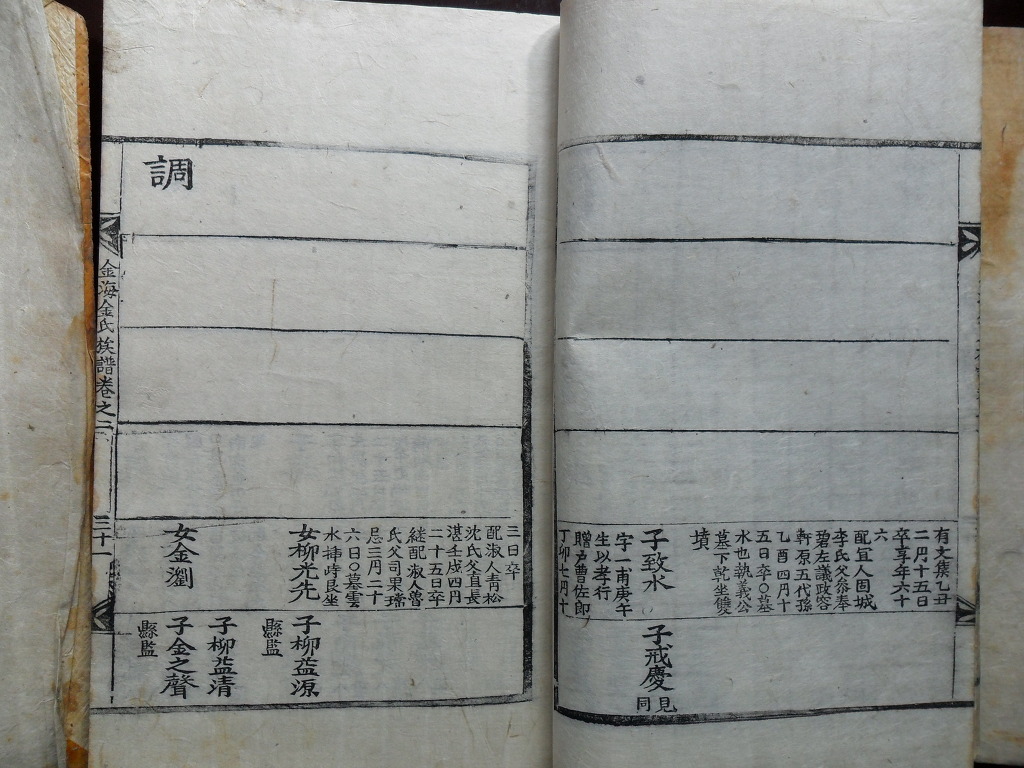 有文集乙丑
二月十五日
卒享年六十
六
配宜人固城
李氏父叅奉
碧左議政容
軒原五代孫
乙酉四月十
五日卒〇墓
水也執義公
墓下乾坐雙
墳
子致水
字一甫庚午
生以孝行
贈戶曹佐郎
丁卯七月十
子戒慶
見同
三日卒
配淑人青松
沈氏父直長
湛壬戌四月
二十五日卒
継配淑人曽
氏父司果瑞
忌三月二十
六日〇墓雲
水揷峙艮坐
女柳光先
女金瀏
子柳益源
縣監
子柳益清
子金之聲
縣監
調
金海金氏族譜卷之二
三十一